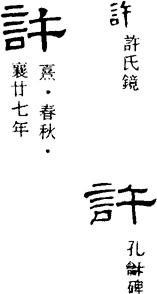 許
許氏鏡
許
孔龢碑
許
熹·春秋·
襄廿七年